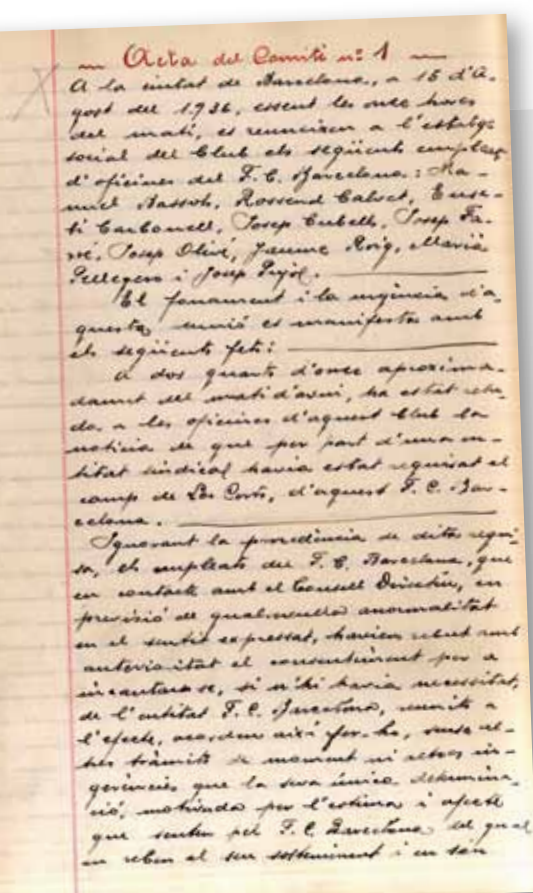 Acta del Comitè nº 1
A la ciutat de Barcelona, a 15 d'A-
gost del 1.936, essent les onze hores
del matí, es reuneixen a l'estatge
social del Club els següents empleats
d'oficines del F. C. Barcelona: Ma-
nuel Bassols, Rossend Calvet, Euse-
bi Carbonell, Josep Cubells, Josep Fa-
rré, Josep Olivé, Jaume Roig, Marià
Pellegero i Josep Pujol.
El fonament i la urgència d'a-
questa reunió es manifesta amb
els següents fets:
A dos quarts d'onze aproxima-
dament del matí d'avui, ha estat rebu-
da a les oficines d'aquest Club la
notícia de que per part d'una en-
titat sindical havia estat requisat el
camp de Les Corts, d'aquest F. C. Bar-
celona.
Ignorant la procedència de dita requi-
sa, els empleats del F. C. Barcelona, que
en contacte amb el Consell Directiu, en
previsió de qualsevulla anormalitat
en el sentit expressat, havien rebut amb
anterioritat el consentiment per a
incautar-se, si n'hi havia necessitat,
de l'entitat F. C. Barcelona, reunits a
l'efecte, acorden així fer-ho, sense al-
tres tràmits de moment ni altres in-
gerències que la seva única determina-
ció, motivada per l'estima i afecte
que senten pel F. C. Barcelona del qual
en reben el seu sosteniment i en són